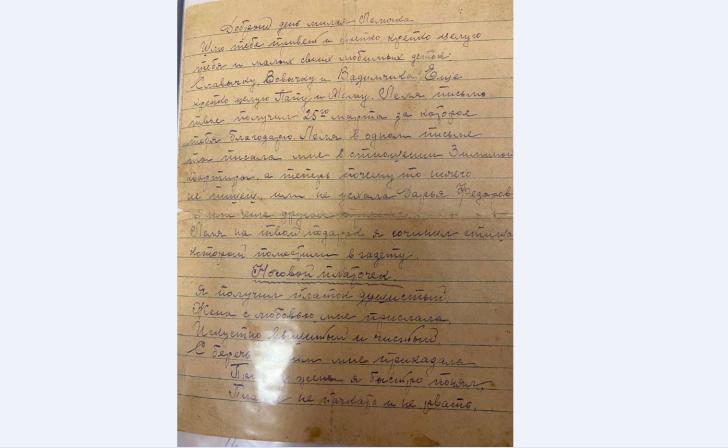 Добрый день милая Лёличка
Шлю тебе привет и крепко, крепко целую
тебя и малых своих любимых деток:
Славичку, Вовичку и Вадимчика. Еще
крепко целую Папу и Маму. Леля письмо
твое получил 25го марта за которое
тебя благодарю. Леля в одном письме
ты писала мне в отношении Зимины
квартиры, а теперь почему то ничего
не пишеш, или не уехала Дарья Федоров
или еще другая
Леля на твой подарок я сочинил стишок
который поместили в газету.
Носовой платочек.
Я получил платок душистый,
Жена с любовью мне прислала,
Искустно вышитый и чистый,
Е беречь мне приказала
жена я быстро понял,
не пачкать и не рвать,